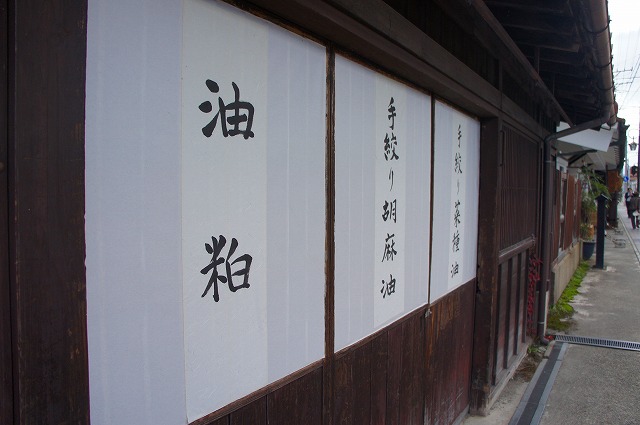 油粕
手絞り胡麻油
手絞り菜種油